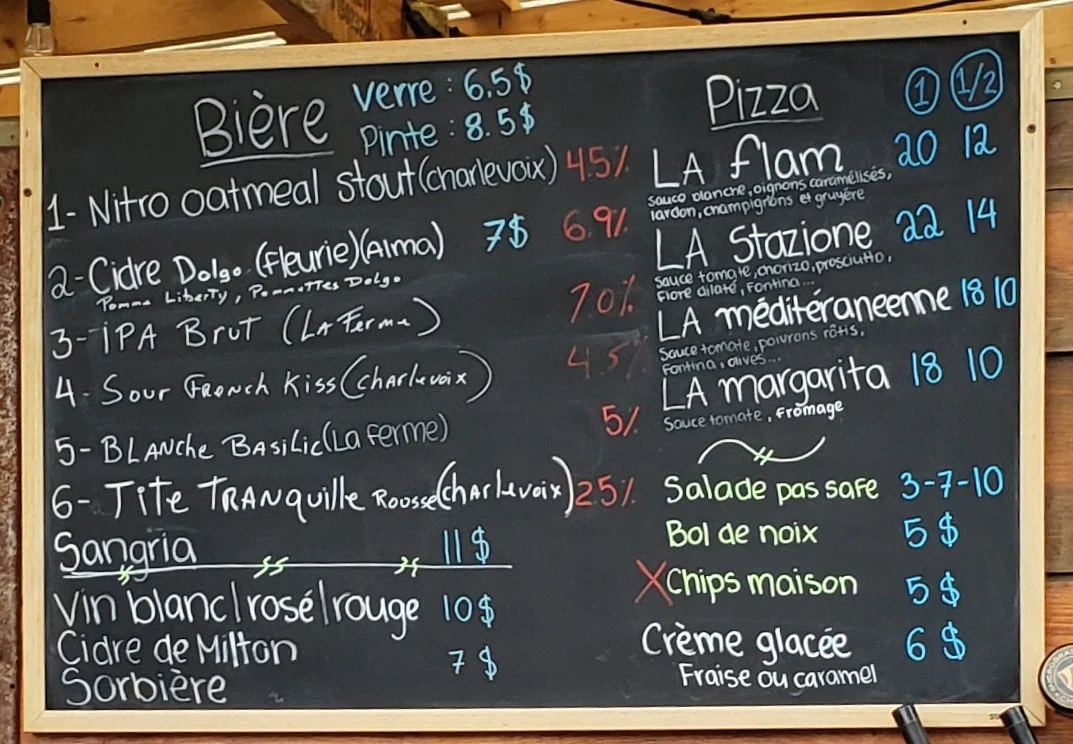 Bière
Verre : 6.5$
Pinte : 8.5$
1- Nitro oatmeal stout (charlevoix) 4.5%
2- Cidre Dolgo (Fleurie) (Alma) 7$ 6.9%
Pomme Liberty, Pommettes Dolgo
3- IPA BRUT (LA Ferme) 7.0%
4- Sour FRENCH Kiss (charlevoix) 4.5%
5- BLANChe BASiLiC (La ferme) 5%
6- TiTe TRANQuille Rousse (charlevoix) 2.5%
Sangria 11$
Vin blanc|rosé|rouge 10$
Cidre de Milton 7$
Sorbière
Pizza 1 1/2
LA flam 20 12
sauce blanche, oignons caramélisés,
lardon, champignons et gruyère
LA Stazione 22 14
Sauce tomate, chorizo, prosciutto,
Fiore dilaté, Fontina...
LA méditéraneenne 18 10
Sauce tomate, poivrons rôtis,
Fontina, olives...
LA margarita 18 10
Sauce tomate, Fromage
Salade pas safe 3-7-10
Bol de noix 5$
X Chips maison 5$
Crème glacée 6$
Fraise ou caramel